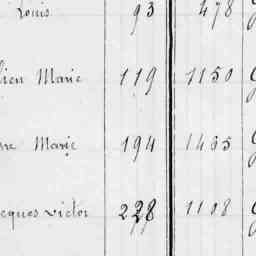 Louis 93 478
lien Marie 119 1150
re Marie 194 1465
cques Victor 228 1108